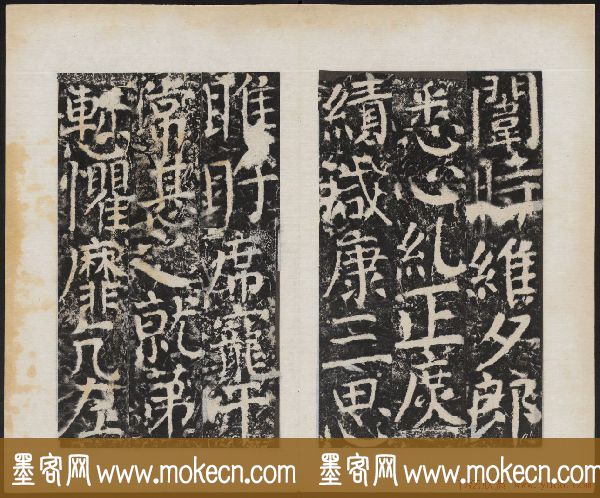 闈時維夕郎
悉心糺正庶
績咸康三思
睢盱席寵干
常甚之就弟
慙懼靡冗左
墨客网 www.mokecn.com 墨客网 www.mokecn.com